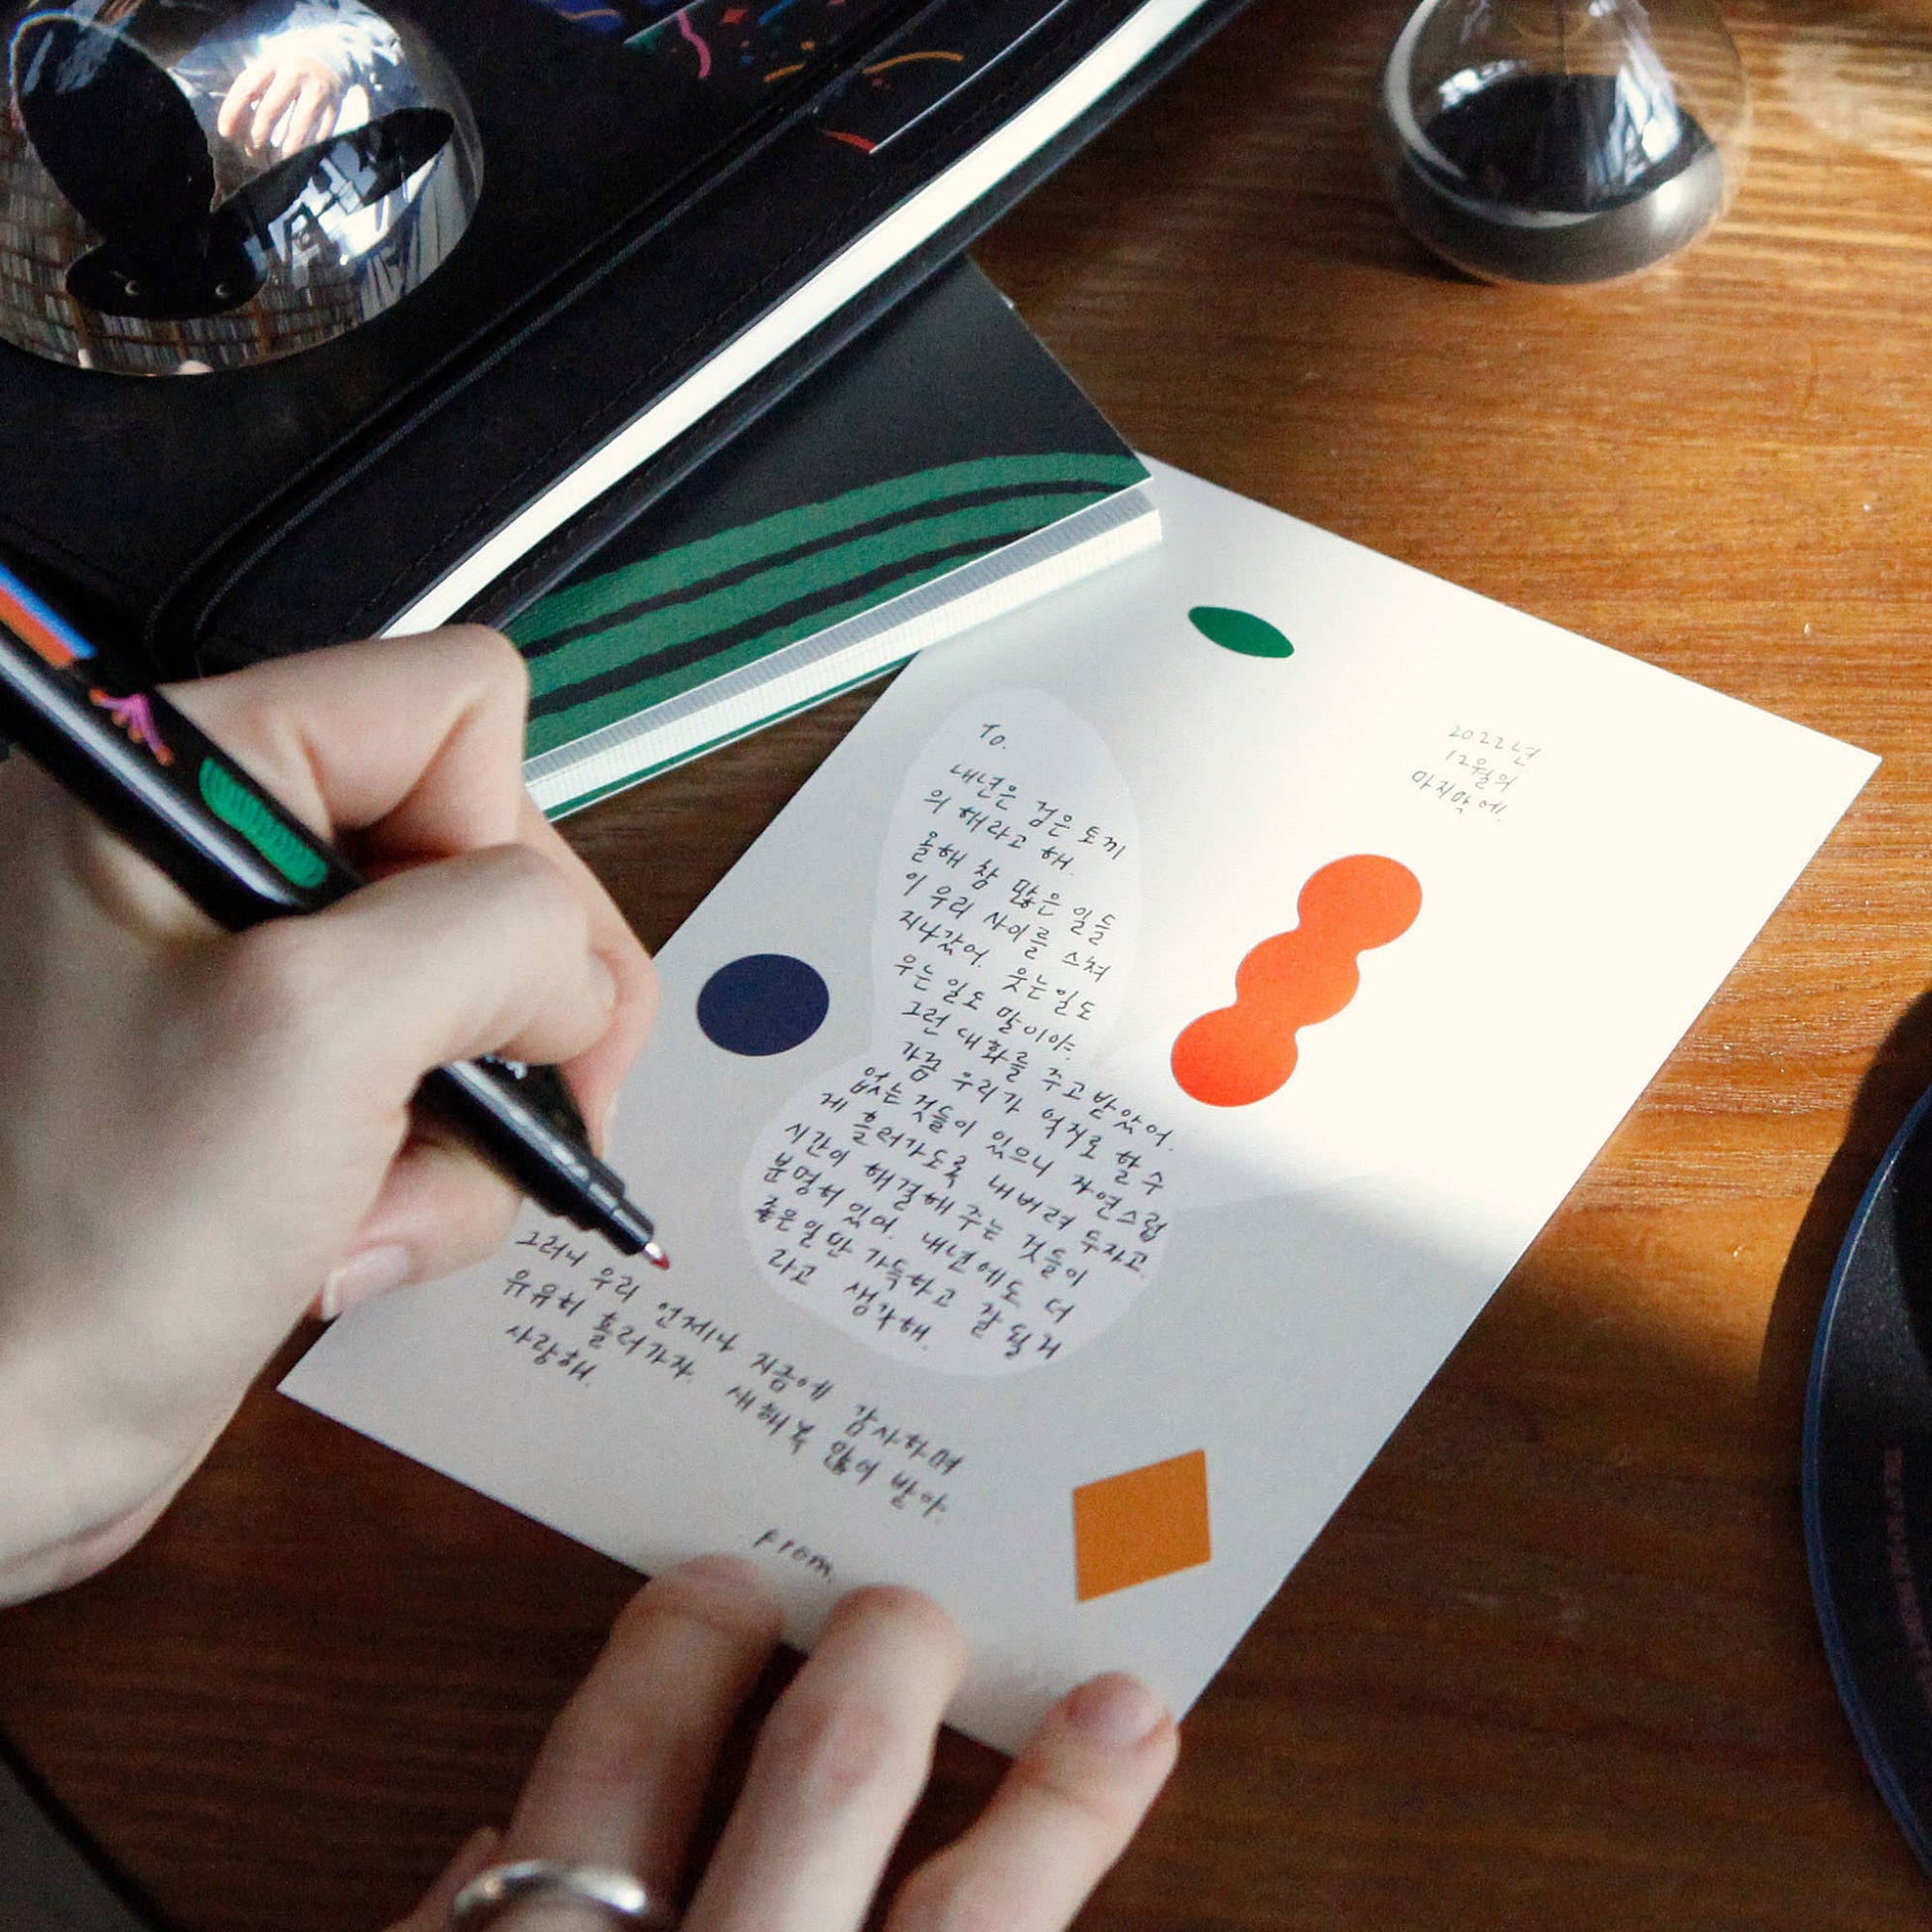 2022년
12월의
마지막에.
To.
내년은 검은 토끼
의 해라고 해.
올해 참 많은 일들
이 우리 사이를 스쳐
지나갔어. 웃는일도
우는 일도 말이야.
그런 대화를 주고받았어.
가끔 우리가 억지로 할 수
없는 것들이 있으니 자연스럽
게 흘러가도록 내버려 두자고.
시간이 해결해 주는 것들이
분명히 있어. 내년에도 더
좋은일만 가득하고 잘 될거
라고 생각해.
그러니 우리 언제나 지금에 감사하며
유유히 흘러가자. 새해복 많이 받아.
사랑해.
From.